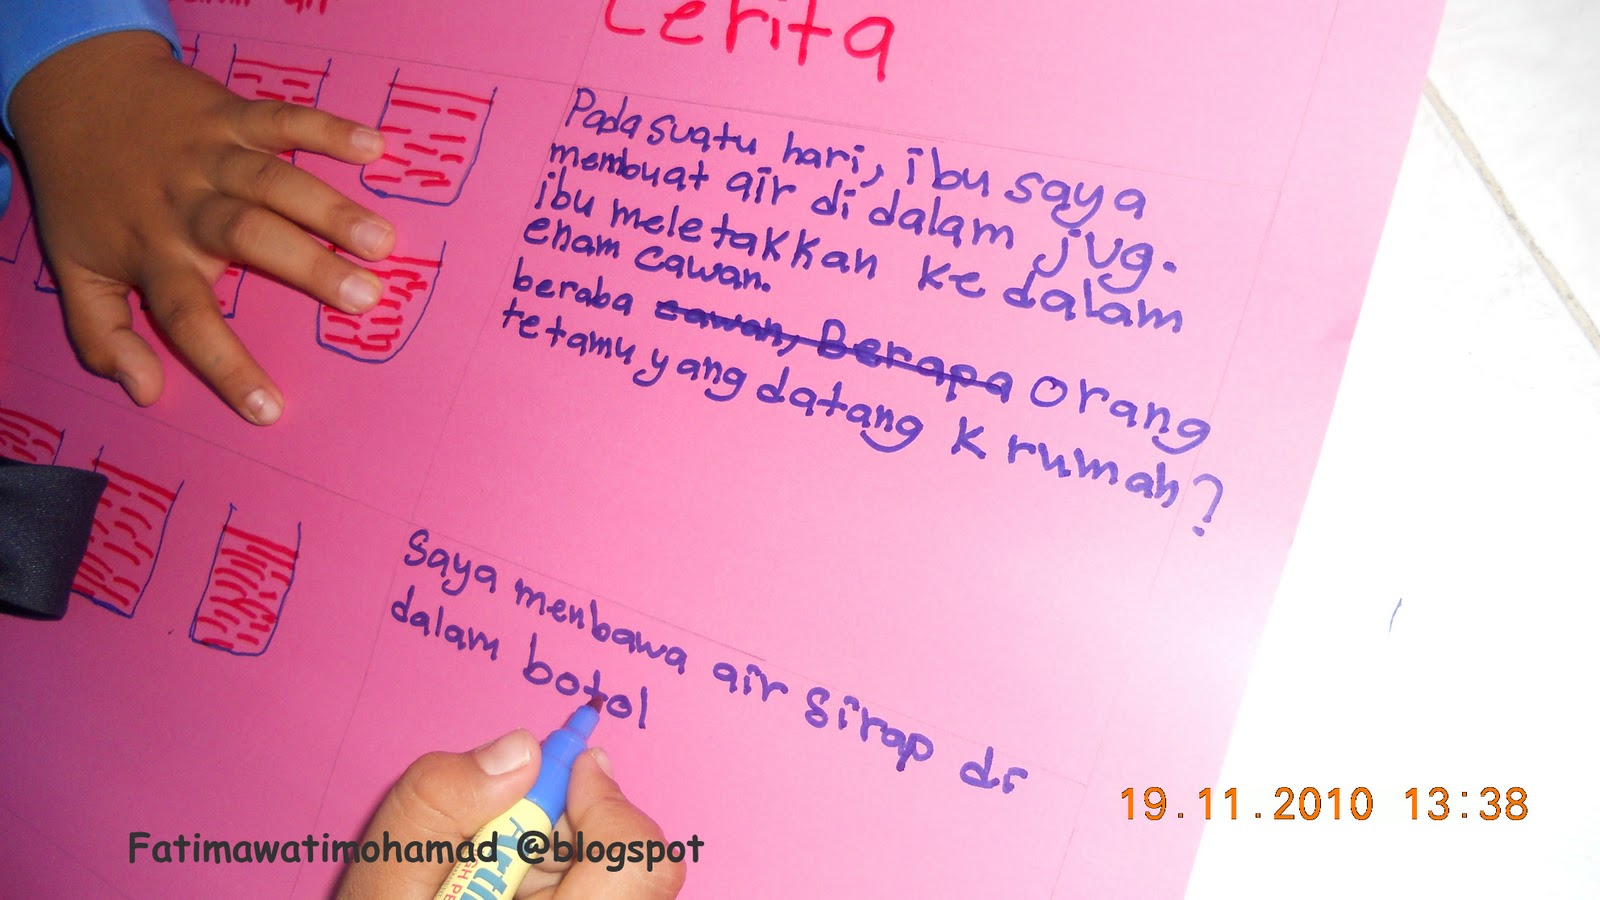 Cerita
Pada suatu hari, ibu saya
membuat air di dalam jug.
ibu meletakkan ke dalam
enam cawan.
beraba cawan, Berapa orang
tetamu yang datang k rumah?
Saya menbawa air sirap di
dalam botol
19.11.2010 13:38
Fatimawatimohamad @blogspot